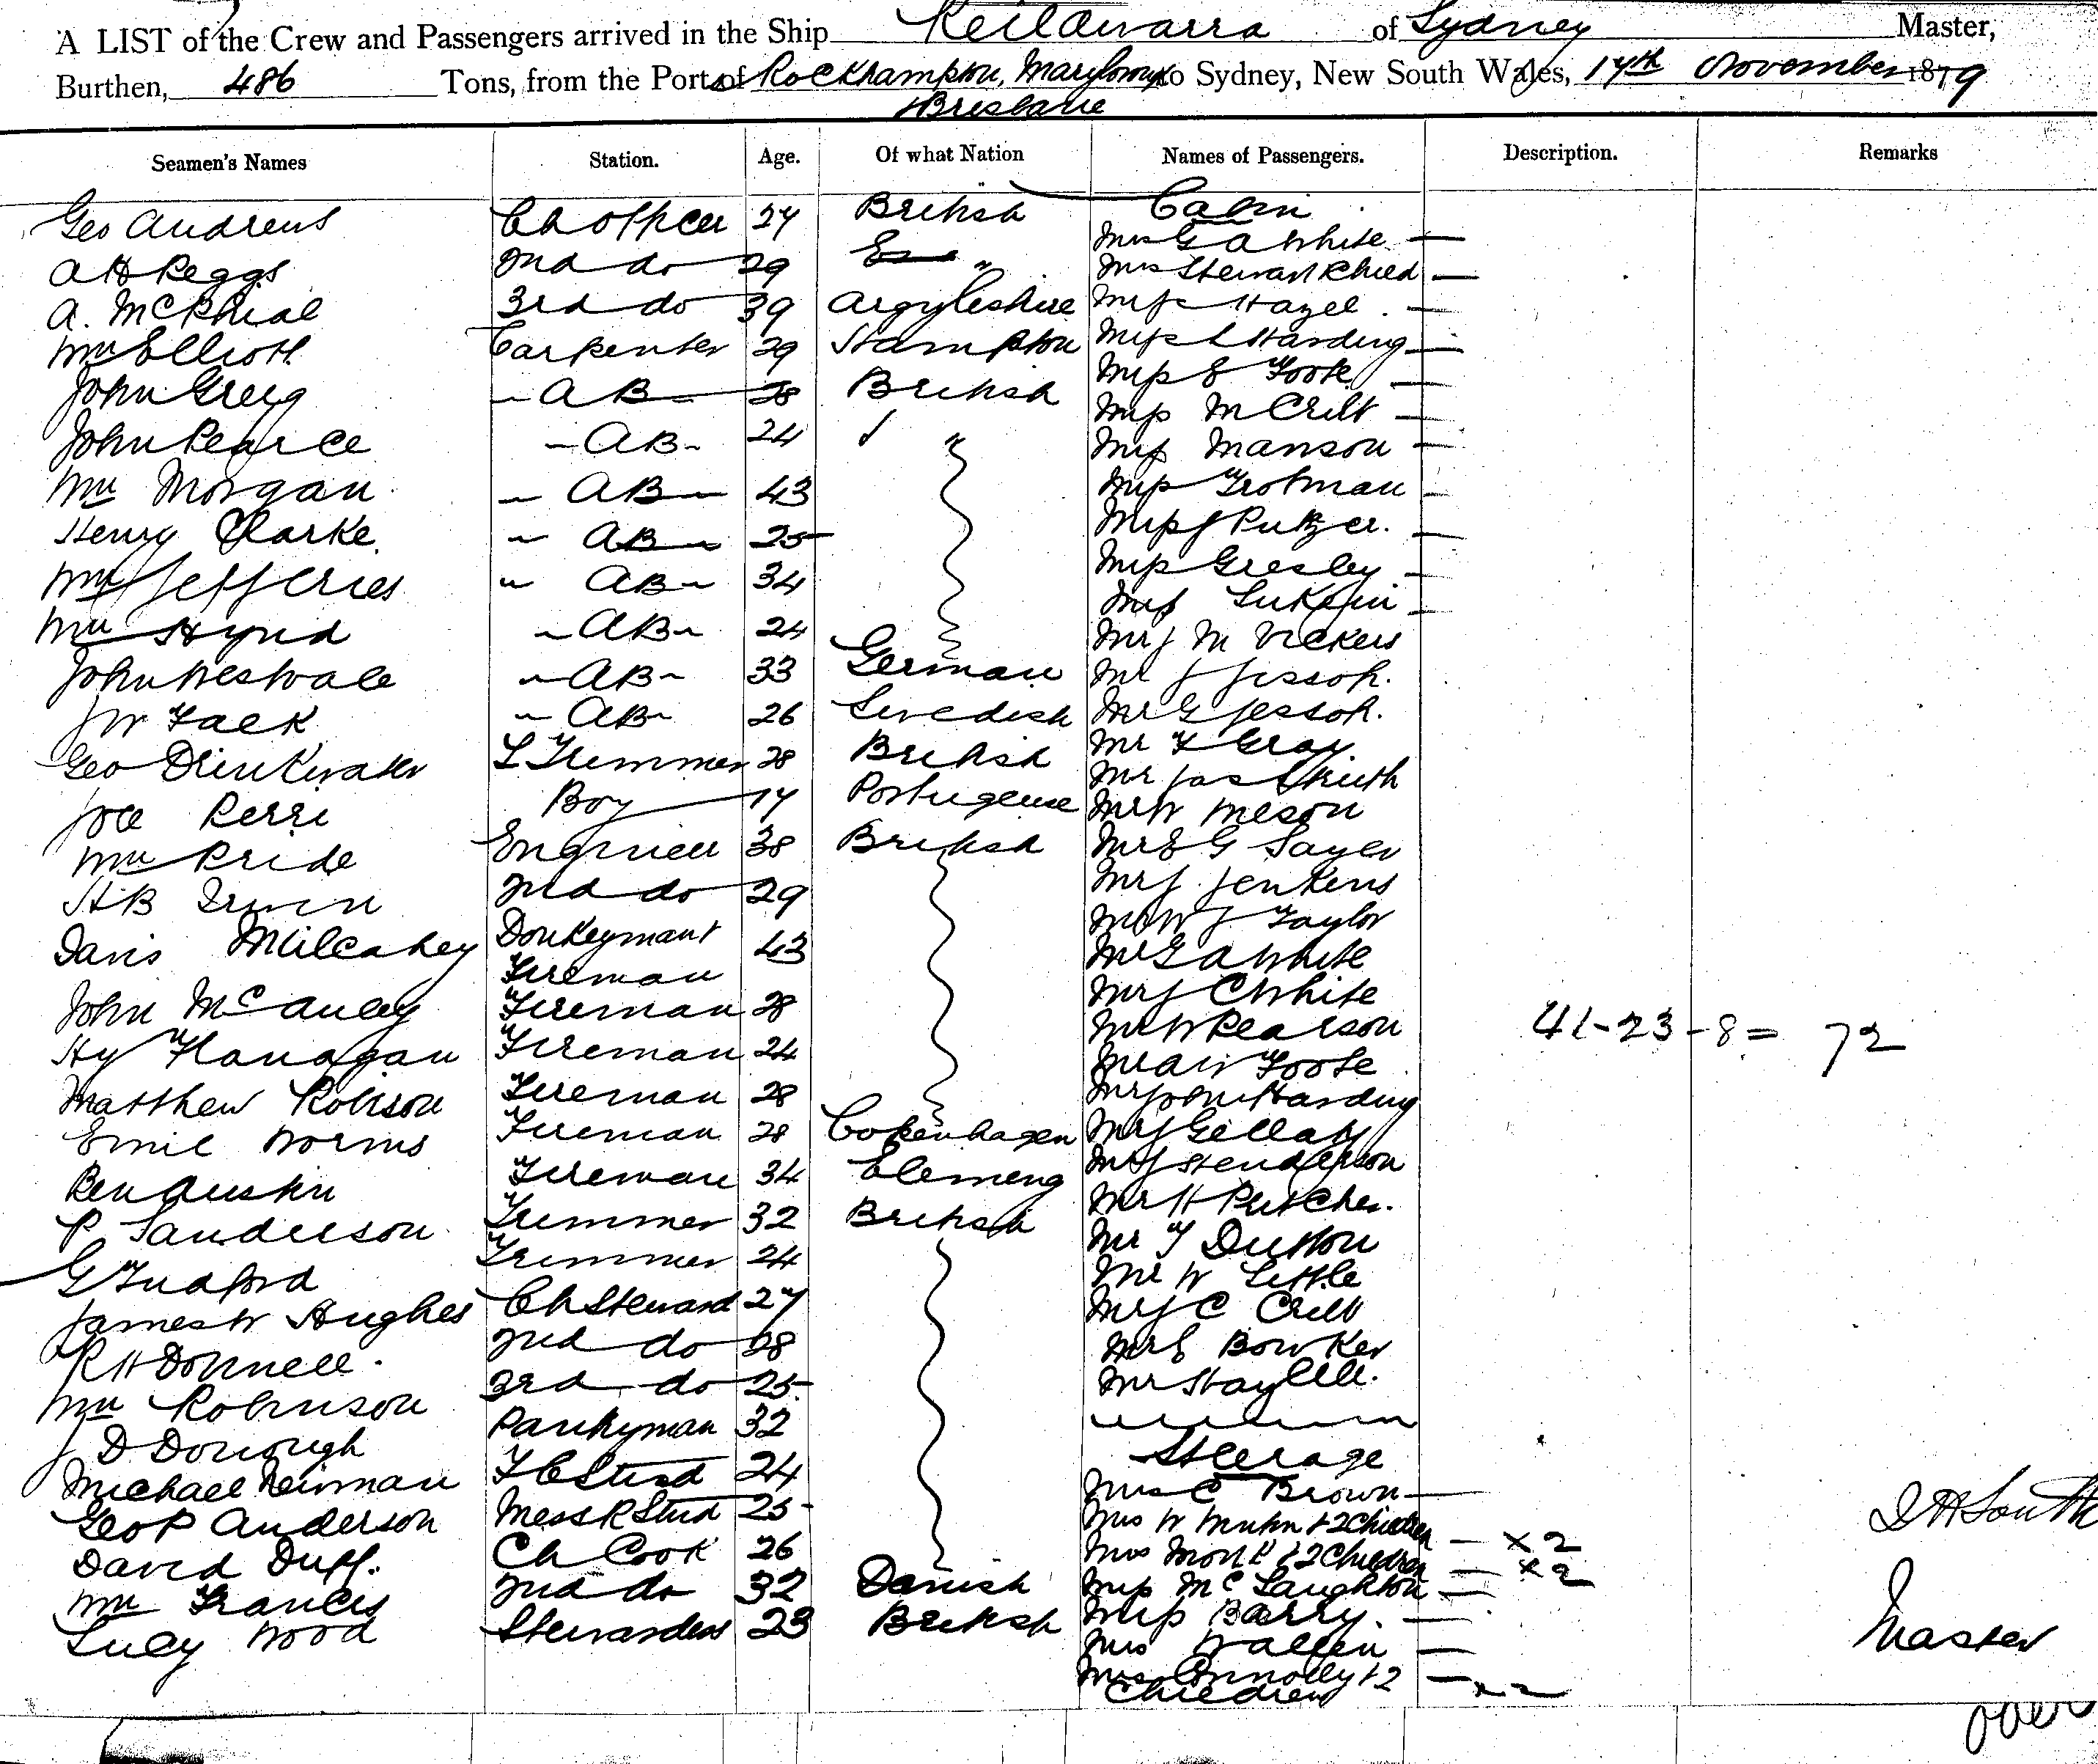 A LIST of the Crew and Passengers arrived in the Ship Keilawarra of Sydney Master,
Burthen, 486 Tons, from the Ports of Rockhampton, Maryboro to Sydney, New South Wales, 17th November 1879
& Brisbane
Seamen's Names Station. Age. Of what Nation Names of Passengers. Description. Remarks
Geo Andrews Ch Officer 27 British Cabin
Mrs G A White
A H Peggs 2nd do 29 " Mrs Stewart & Child
A. McPhial 3rd do 39 Argyleshire Miss Hazel
Wm Elliott Carpenter 29 Hampton Miss L Harding
John Greig AB 28 British Miss E Foote
John Pearce AB 24 " Miss M Cribb
Miss Manson
Wm Morgan AB 43 Miss Trotman
Henry Clarke AB 25 Miss J Putzer.
Wm Jefferies AB 34 Miss Gresley
Miss
Wm Hynd AB 24 Mr J M Vickers
John Westvale AB 33 German Mr J Jessop.
J W Falk AB 26 Swedish Mr G Jessop.
Geo Drinkwater L Trimmer 28 British Mr F Gray
Mr Jas
Joe Perri Boy 17 Portugeuse Mr W Meson
Wm Pride Engineer 38 British Mr E G Sayer
H B Irwin 2nd do 29 Mr J Jenkens
Mr W J Taylor
Davis Mulcahey Donkeyman & 43 Mr G A White
Fireman
John McCauley Fireman 28 Mr J C White
Mr W Pearson 41-23-8= 72
Hy Flanagan Fireman 24 Mr A W Foote
Matthew Robison Fireman 28 Mr John Harding
Emil Worms Fireman 28 Copenhagen Mr J
Ben Austin Fireman 34 Mr J Henderson
P Sanderson Trimmer 32 British Mr H Putcher.
G Trimmer 24 Mr T Dutton
Mr W Little
James W Hughes Ch Steward 27 Mr J C Cribb
R H Donnell. 2nd do 28 Mr E Bowker
Wm Robinson 3rd do 25 Mr
J D Donough Pantryman 32
Steerage
Michael Newman F C Stwd 24 Mrs C Brown
Geo P Anderson Mess R Stwd 25 Mrs W & 2 Children x 2
David Duff. Ch Cook 26 Mrs Monk & 2 Children x 2
Wm Francis 2nd do 32 Danish Miss McLaughton
Lucy Wood Stewardess 23 British Miss Barry.
Mrs
Mrs Connolly & 2 x 2
Children
Master
over